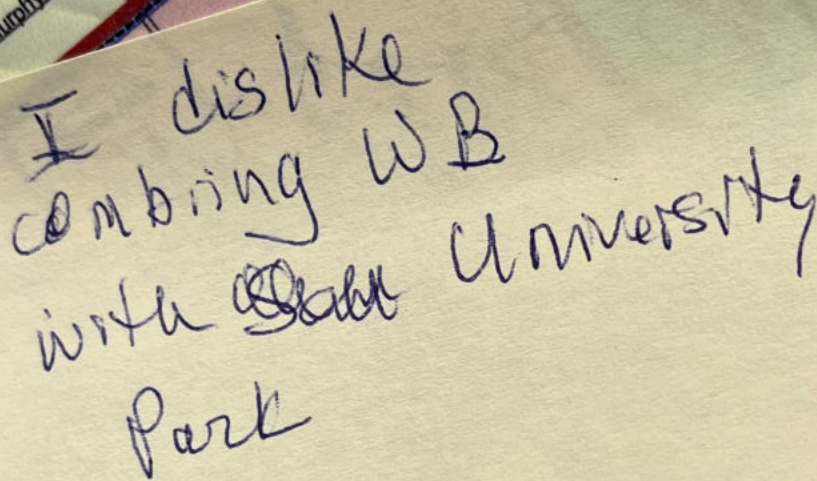 murphy
I dislike
combiing WB
with University
Park